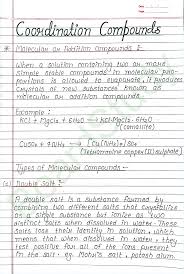 Coordination Compounds
* Molecular or Addition Compounds :-
When a solution containing two or more
simple stable compounds in molecular pro-
portions is allowed to evaporate, it produces
crystals of new substances known as
molecular or addition compounds.
Example :
KCl + MgCl₂ + 6H₂O → KCl·MgCl₂·6H₂O
(carnallite)
CuSO₄ + 4NH₃ → [Cu(NH₃)₄]SO₄
(Tetraammine copper(II) sulphate)
Types of Molecular Compounds :-
Double Salt :-
A double salt is a substance formed by
combining two different salts that crystallize
as a single substance but ionize as two
distinct salts when dissolved in water. These
salts lose their identity in solution, which
means that when dissolved in water, they
test positive for all of the ions present
in the salt. eg. Mohr's salt, potash alum.